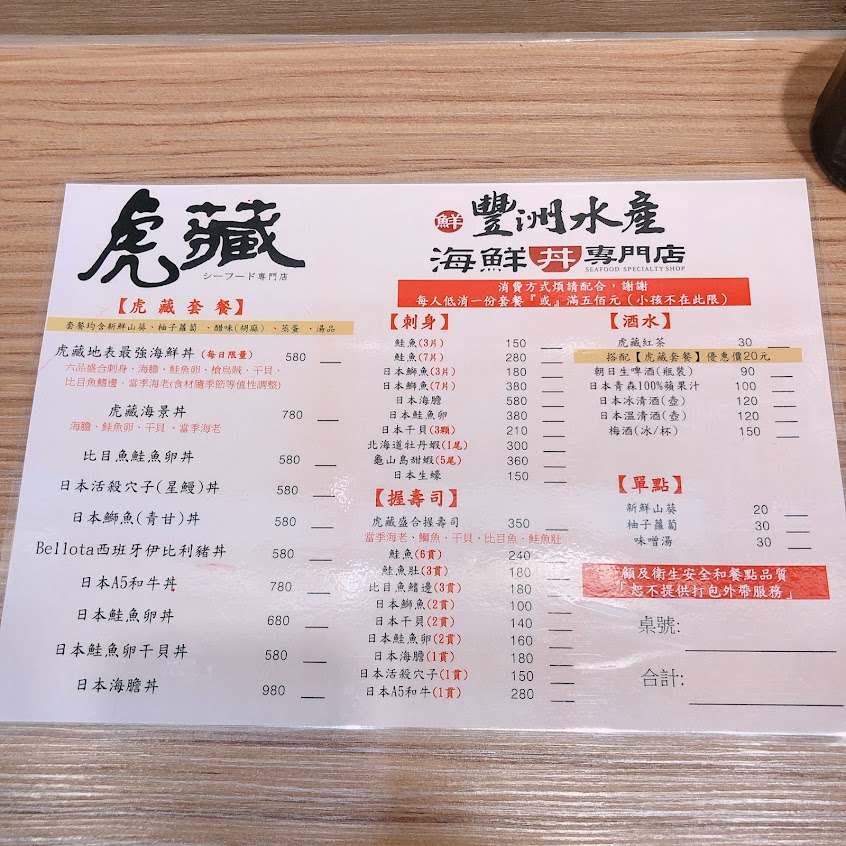 虎藏
シーフード専門店
【虎藏套餐】
套餐均含新鮮山葵、柚子蘿蔔、醋味(胡麻)、蒸蛋、湯品
虎藏地表最強海鮮丼(每日限量) 580
六品盛合刺身、海膽、鮭魚卵、槍烏賊、干貝、
比目魚鰭邊、當季海老(食材隨季節等值性調整)
虎藏海景丼 780
海膽、鮭魚卵、干貝、當季海老
比目魚鮭魚卵丼 580
日本活殺穴子(星鰻)丼 580
日本鰤魚(青甘)丼 580
Bellota西班牙伊比利豬丼 580
日本A5和牛丼 780
日本鮭魚卵丼 680
日本鮭魚卵干貝丼 580
日本海膽丼 980
鮮 豐洲水產
海鮮丼專門店
SEAFOOD SPECIALTY SHOP
消費方式煩請配合,謝謝
每人低消一份套餐『或』滿五佰元(小孩不在此限)
【刺身】
鮭魚(3片) 150
鮭魚(7片) 280
日本鰤魚(3片) 180
日本鰤魚(7片) 380
日本海膽 580
日本鮭魚卵 380
日本干貝(3顆) 210
北海道牡丹蝦(1尾) 300
龜山島甜蝦(5尾) 360
日本生蠔 150
【握壽司】
虎藏盛合握壽司 350
當季海老、鰤魚、干貝、比目魚、鮭魚肚
鮭魚(6貫) 240
鮭魚肚(3貫) 180
比目魚鰭邊(3貫) 180
日本鰤魚(2貫) 100
日本干貝(2貫) 140
日本鮭魚卵(2貫) 160
日本海膽(1貫) 180
日本活殺穴子(1貫) 150
日本A5和牛(1貫) 280
【酒水】
虎藏紅茶 30
搭配【虎藏套餐】優惠價20元
朝日生啤酒(瓶裝) 90
日本青森100%蘋果汁 100
日本冰清酒(壺) 120
日本溫清酒(壺) 120
梅酒(冰/杯) 150
【單點】
新鮮山葵 20
柚子蘿蔔 30
味噌湯 30
顧及衛生安全和餐點品質
「恕不提供打包外帶服務」
桌號:
合計: